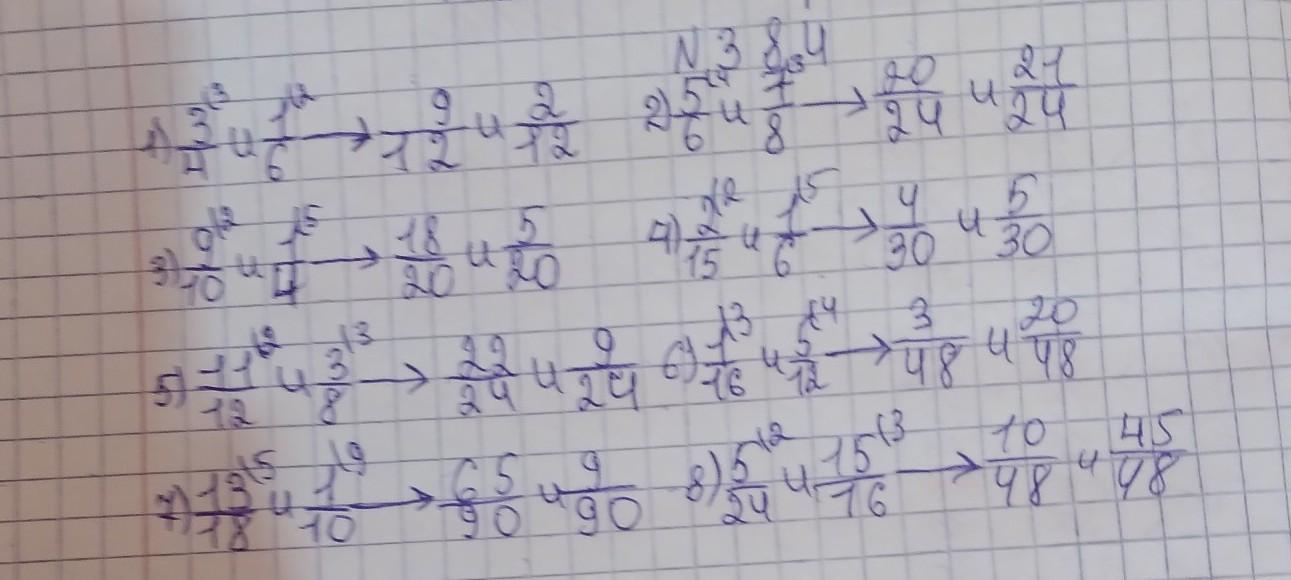 N 384
1) 3/4 \3 и 1/6 \2 → 9/12 и 2/12 2) 5/6 \4 и 7/8 \3 → 20/24 и 21/24
3) 9/10 \2 и 1/4 \5 → 18/20 и 5/20 4) 2/15 \2 и 1/6 \5 → 4/30 и 5/30
5) 11/12 \2 и 3/8 \3 → 22/24 и 9/24 6) 1/16 \3 и 5/12 \4 → 3/48 и 20/48
7) 13/18 \5 и 1/10 \9 → 65/90 и 9/90 8) 5/24 \2 и 15/16 \3 → 10/48 и 45/48